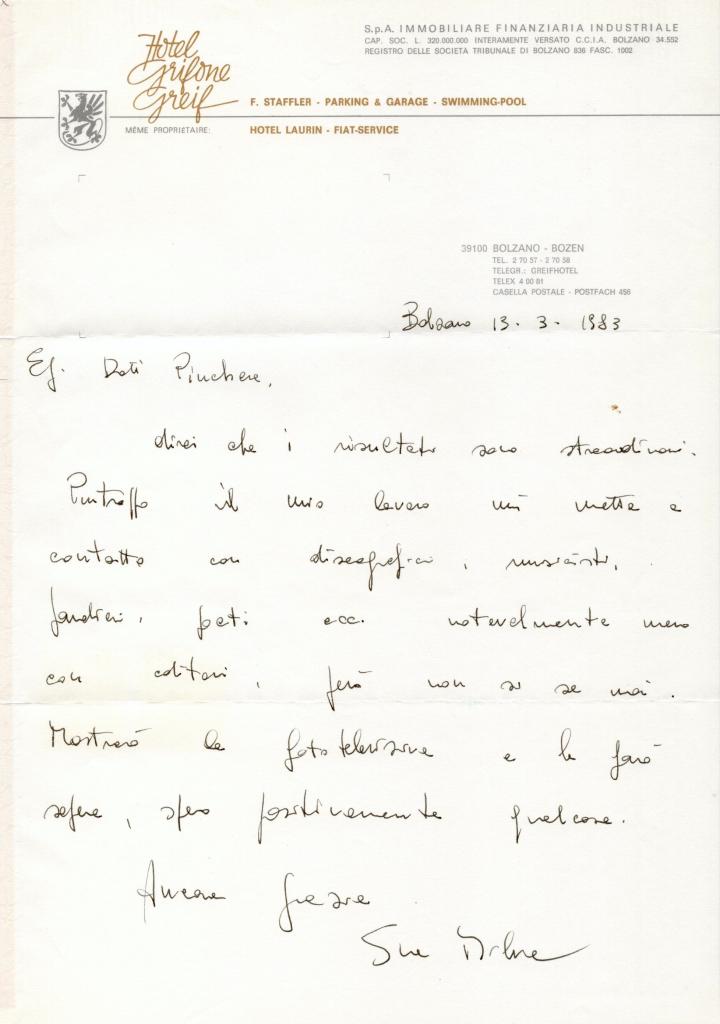 Hotel
Grifone
Greif
S.p.A. IMMOBILIARE FINANZIARIA INDUSTRIALE
CAP. SOC. L. 320.000.000 INTERAMENTE VERSATO C.C.I.A. BOLZANO 34.552
REGISTRO DELLE SOCIETA TRIBUNALE DI BOLZANO 836 FASC. 1002
F. STAFFLER - PARKING & GARAGE - SWIMMING-POOL
MÊME PROPRIÉTAIRE: HOTEL LAURIN - FIAT-SERVICE
39100 BOLZANO - BOZEN
TEL. 2 70 57 - 2 70 58
TELEGR.: GREIFHOTEL
TELEX 4 00 81
CASELLA POSTALE - POSTFACH 456
Bolzano 13. 3. 1983
Eg. Dott Pinchere,
direi che i risultati sono straordinari.
Purtroppo il mio lavoro mi mette a
contatto con discografici, musicisti,
fantini, poeti ecc. notevolmente meno
con editori, però non si sa mai.
Mostrerò la foto televisiva e le farò
sapere, spero positivamente qualcosa.
Ancora grazie